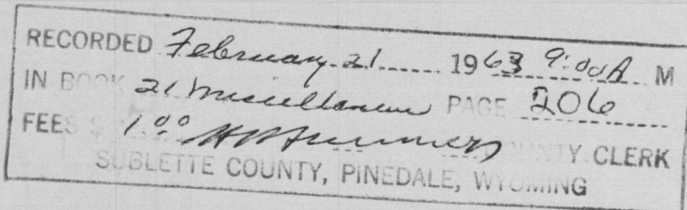 RECORDED February 21 1963 9:00A M
IN BOOK 21 Miscellaneous PAGE 206
FEES $ 1.00 COUNTY CLERK
SUBLETTE COUNTY, PINEDALE, WYOMING